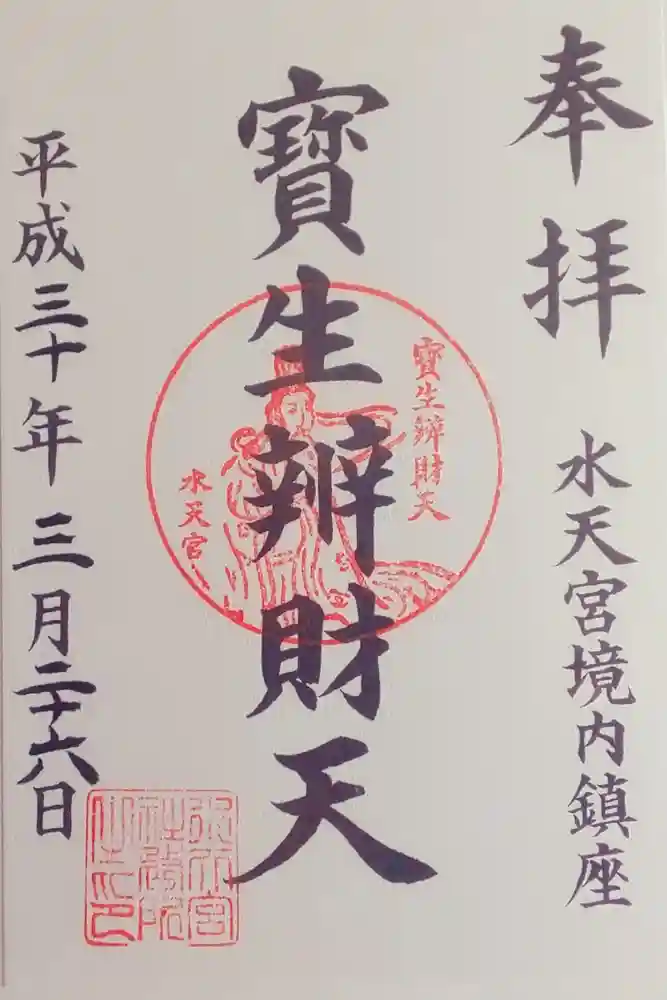 奉拝
水天宮境内鎮座
寶生辨財天
寶生辨財天
水天宮
平成三十年三月二十六日
水天宮
社務所
之印